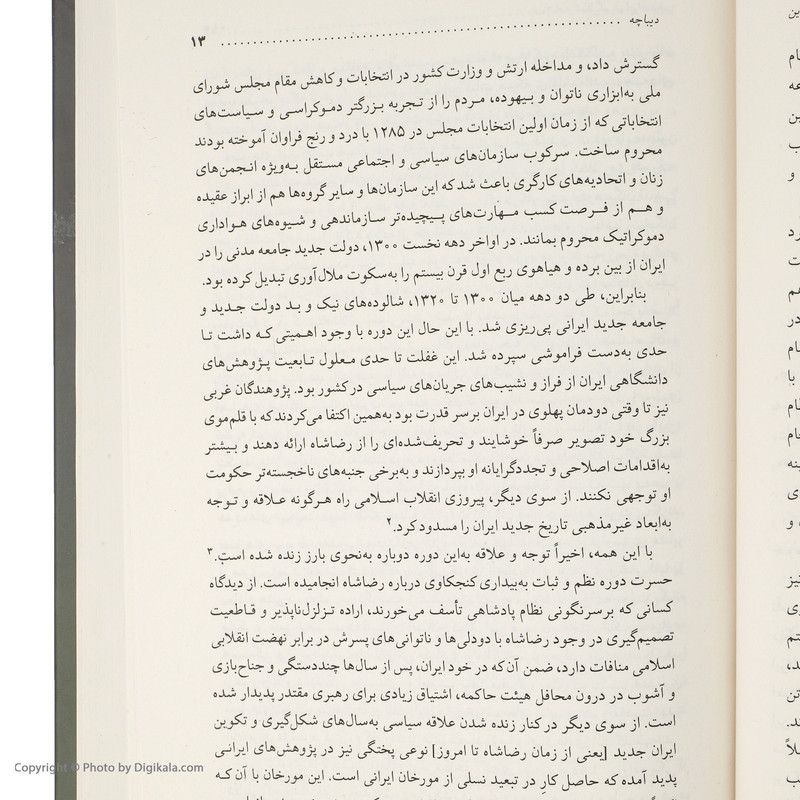 دیباچه ۱۳
گسترش داد، و مداخله ارتش و وزارت کشور در انتخابات و کاهش مقام مجلس شورای
ملی به‌ابزاری ناتوان و بیهوده، مردم را از تجربه بزرگتر دموکراسی و سیاست‌های
انتخاباتی که از زمان اولین انتخابات مجلس در ۱۲۸۵ با درد و رنج فراوان آموخته بودند
محروم ساخت. سرکوب سازمان‌های سیاسی و اجتماعی مستقل به‌ویژه انجمن‌های
زنان و اتحادیه‌های کارگری باعث شد که این سازمان‌ها و سایر گروه‌ها هم از ابراز عقیده
و هم از فرصت کسب مهارت‌های پیچیده‌تر سازماندهی و شیوه‌های هواداری
دموکراتیک محروم بمانند. در اواخر دهه نخست ۱۳۰۰، دولت جدید جامعه مدنی را در
ایران از بین برده و هیاهوی ربع اول قرن بیستم را به‌سکوت ملال‌آوری تبدیل کرده بود.
بنابراین، طی دو دهه میان ۱۳۰۰ تا ۱۳۲۰، شالوده‌های نیک و بد دولت جدید و
جامعه جدید ایرانی پی‌ریزی شد. با این حال این دوره با وجود اهمیتی که داشت تا
حدی به‌دست فراموشی سپرده شد. این غفلت تا حدی معلول تابعیت پژوهش‌های
دانشگاهی ایران از فراز و نشیب‌های جریان‌های سیاسی در کشور بود. پژوهندگان غربی
نیز تا وقتی دودمان پهلوی در ایران برسر قدرت بود به‌همین اکتفا می‌کردند که با قلم‌موی
بزرگ خود تصویر صرفاً خوشایند و تحریف‌شده‌ای را از رضاشاه ارائه دهند و بیشتر
به‌اقدامات اصلاحی و تجددگرایانه او بپردازند و به‌برخی جنبه‌های ناخجسته‌تر حکومت
او توجهی نکنند. از سوی دیگر، پیروزی انقلاب اسلامی راه هرگونه علاقه و توجه
به‌ابعاد غیرمذهبی تاریخ جدید ایران را مسدود کرد.۲
با این همه، اخیراً توجه و علاقه به‌این دوره دوباره به‌نحوی بارز زنده شده است.۳
حسرت دوره نظم و ثبات به‌بیداری کنجکاوی درباره رضاشاه انجامیده است. از دیدگاه
کسانی که برسرنگونی نظام پادشاهی تأسف می‌خورند، اراده تزلزل‌ناپذیر و قاطعیت
تصمیم‌گیری در وجود رضاشاه با دودلی‌ها و ناتوانی‌های پسرش در برابر نهضت انقلابی
اسلامی منافات دارد، ضمن آن‌که در خود ایران، پس از سال‌ها چنددستگی و جناح‌بازی
و آشوب در درون محافل هیئت حاکمه، اشتیاق زیادی برای رهبری مقتدر پدیدار شده
است. از سوی دیگر در کنار زنده شدن علاقه سیاسی به‌سال‌های شکل‌گیری و تکوین
ایران جدید [یعنی از زمان رضاشاه تا امروز] نوعی پختگی نیز در پژوهش‌های ایرانی
پدید آمده که حاصل کارِ در تبعید نسلی از مورخان ایرانی است. این مورخان با آن‌که
Copyright © Photo by Digikala.com